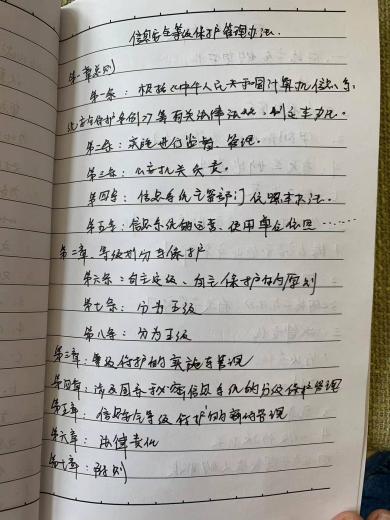 信息安全等级保护管理办法.
第一章总则
第一条：根据《中华人民共和国计算机信息系
统安全保护条例》等有关法律法规，制定本办法。
第二条：实施进行监督、管理。
第三条：公安机关负责。
第四条：信息系统主管部门依照本办法。
第五条：信息系统的运营、使用单位依照……
第二章、等级划分与保护
第六条：自主定级、自主保护的原则
第七条：分为五级
第八条：分为五级
第三章：等级保护的实施与管理
第四章：涉及国家秘密信息系统的分级保护管理
第五章：信息安全等级保护的密码管理
第六章：法律责任
第七章：附则